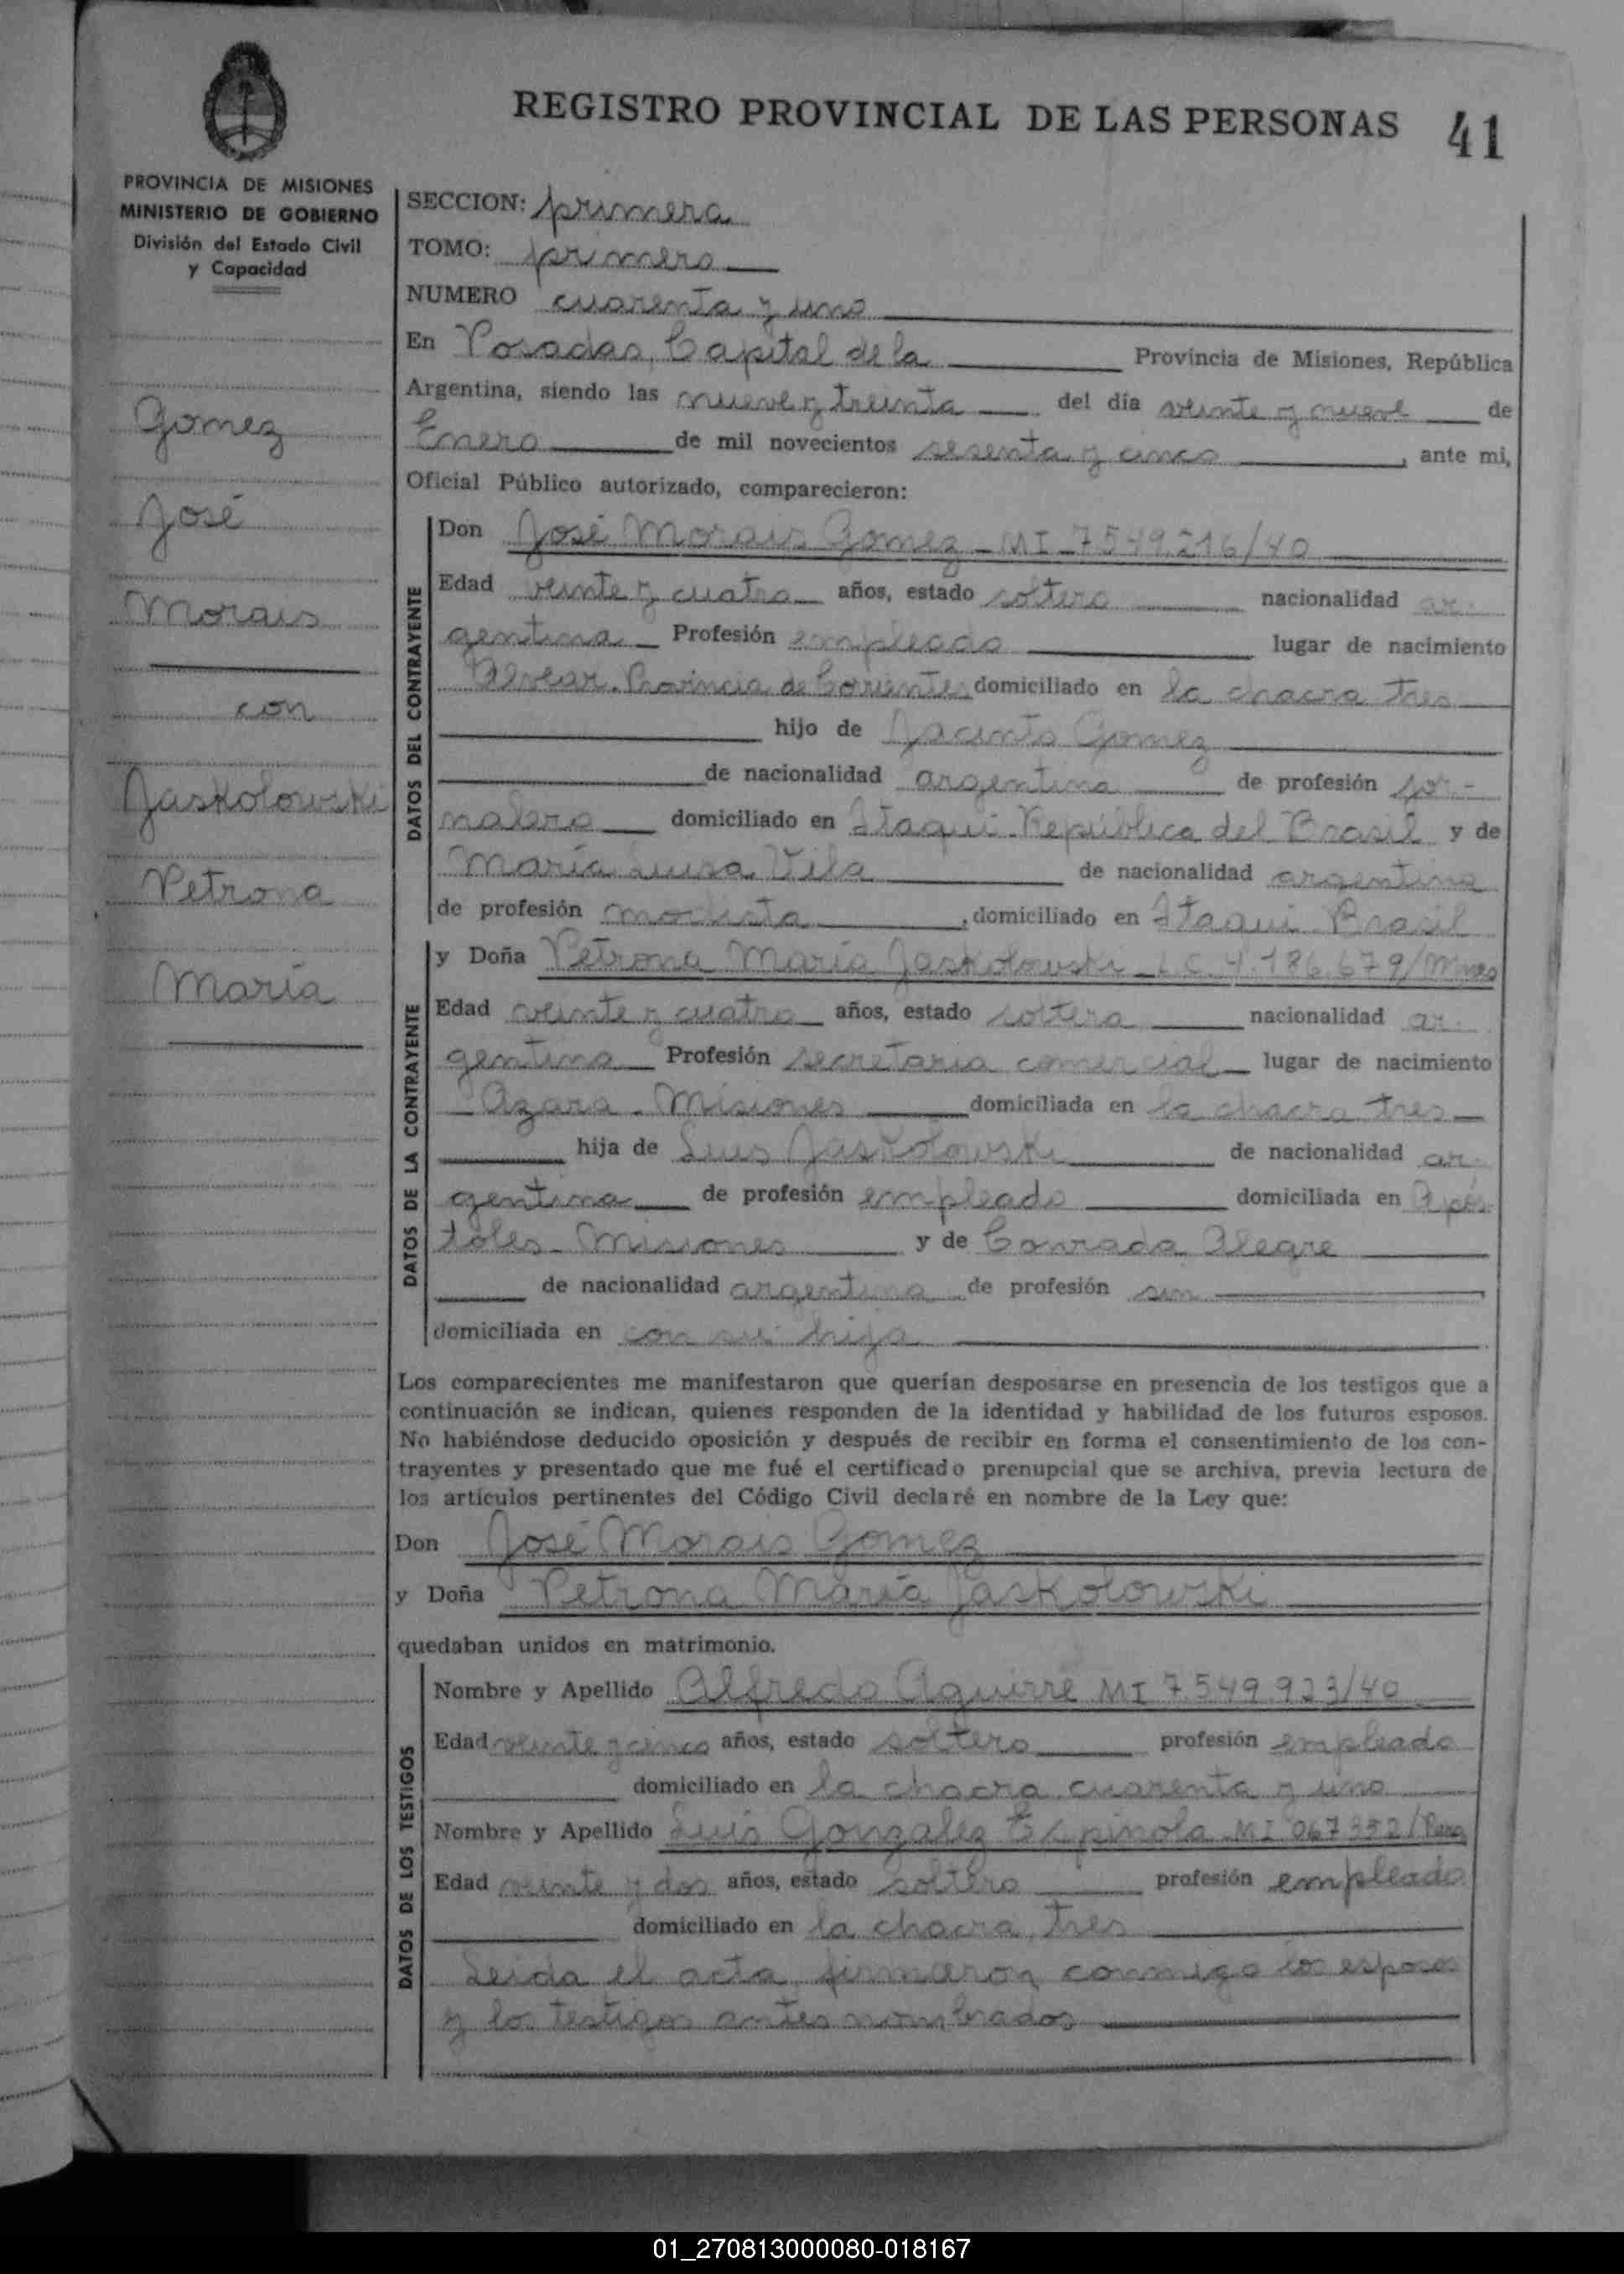 REGISTRO PROVINCIAL DE LAS PERSONAS 41
PROVINCIA DE MISIONES
MINISTERIO DE GOBIERNO
División del Estado Civil
y Capacidad
Gomez
José
Morais
con
Jaskolowski
Petrona
María
SECCION: primera
TOMO: primero
NUMERO cuarenta y uno
En Posadas, Capital de la Provincia de Misiones, República
Argentina, siendo las nueve y treinta del día veinte y nueve de
Enero de mil novecientos sesenta y cinco, ante mi,
Oficial Público autorizado, comparecieron:
DATOS DEL CONTRAYENTE
Don José Morais Gomez - MI - 7549.216/40
Edad veinte y cuatro años, estado soltero nacionalidad ar-
gentina Profesión empleado lugar de nacimiento
Alvear. Provincia de Corrientes domiciliado en la chacra tres
hijo de Jacinto Gomez
de nacionalidad argentina de profesión jor-
nalero domiciliado en Itaqui - República del Brasil y de
María Luisa Vila de nacionalidad argentina
de profesión modista, domiciliado en Itaqui - Brasil
DATOS DE LA CONTRAYENTE
y Doña Petrona María Jaskolowski - L C. 4.186.679/Mnes
Edad veinte y cuatro años, estado soltera nacionalidad ar-
gentina Profesión secretaria comercial lugar de nacimiento
Azara - Misiones domiciliada en la chacra tres
hija de Luis Jaskolowski de nacionalidad ar-
gentina de profesión empleado domiciliada en Após
toles - Misiones y de Conrada Alegre
de nacionalidad argentina de profesión sin
domiciliada en con su hija
Los comparecientes me manifestaron que querían desposarse en presencia de los testigos que a
continuación se indican, quienes responden de la identidad y habilidad de los futuros esposos.
No habiéndose deducido oposición y después de recibir en forma el consentimiento de los con-
trayentes y presentado que me fué el certificado prenupcial que se archiva, previa lectura de
los artículos pertinentes del Código Civil declaré en nombre de la Ley que:
Don José Morais Gomez
y Doña Petrona María Jaskolowski
quedaban unidos en matrimonio.
DATOS DE LOS TESTIGOS
Nombre y Apellido Alfredo Aguirre MI 7.549.923/40
Edad veinte y cinco años, estado soltero profesión empleado
domiciliado en la chacra cuarenta y uno
Nombre y Apellido Luis Gonzalez Espinola MI 067352/
Edad veinte y dos años, estado soltero profesión empleado
domiciliado en la chacra tres
Leida el acta, firmaron conmigo los esposos
y los testigos antes nombrados
01_270813000080-018167